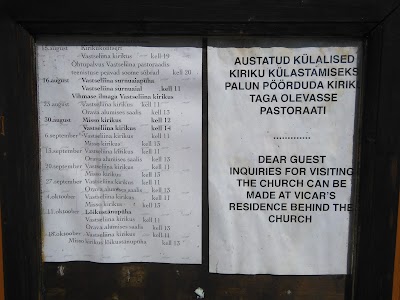 15.august Kirikukontsert
Vastseliina kirikus kell 19
Õhtupalvus Vastseliina pastoraadis
teenistuse peavad soome sõbrad kell 20
16.august Vastseliina surnuaiapüha
Vastseliina surnuaial kell 11
Vihmase ilmaga Vastseliina kirikus
23.august Vastseliina kirikus kell 11
Orava alumises saalis kell 13
30.august Misso kirikus kell 12
Vastseliina kirikus kell 14
6.september Vastseliina kirikus kell 11
Misso kirikus kell 13
13.september Vastseliina kirikus kell 11
Orava alumises saalis kell 13
20.september Vastseliina kirikus kell 11
Misso kirikus kell 13
27.september Vastseliina kirikus kell 11
Orava alumises saalis kell 13
4.oktoober Vastseliina kirikus kell 11
Misso kirikus kell 13
Lõikustänupüha
Vastseliina kirikus kell 11
Orava alumises saalis kell 13
18.oktoober Vastseliina kirikus kell 11
Misso kirikus lõikustänupüha kell 13
AUSTATUD KÜLALISED
KIRIKU KÜLASTAMISEKS
PALUN PÖÖRDUDA KIRIKU
TAGA OLEVASSE
PASTORAATI
*************
DEAR GUEST
INQUIRIES FOR VISITING
THE CHURCH CAN BE
MADE AT VICAR'S
RESIDENCE BEHIND THE
CHURCH